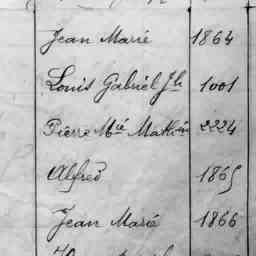 Jean Marie 1864
Louis Gabriel Jh 1001
Pierre Mie Mathurin 2224
Alfred 1865
Jean Marie 1866